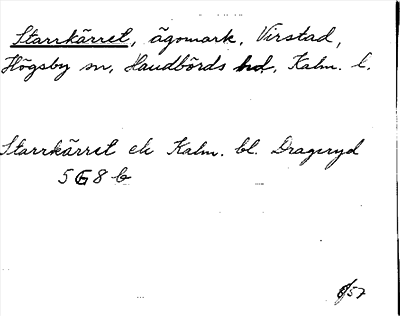 Starrkärret, ägomark, Virstad,
Högsby sn, Handbörds hd, Kalm. l.
Starrkärret ek Kalm. bl. Drageryd
5 G 8 b
57